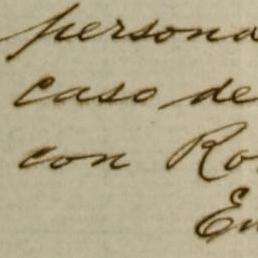 persona
caso de
con Ro
En